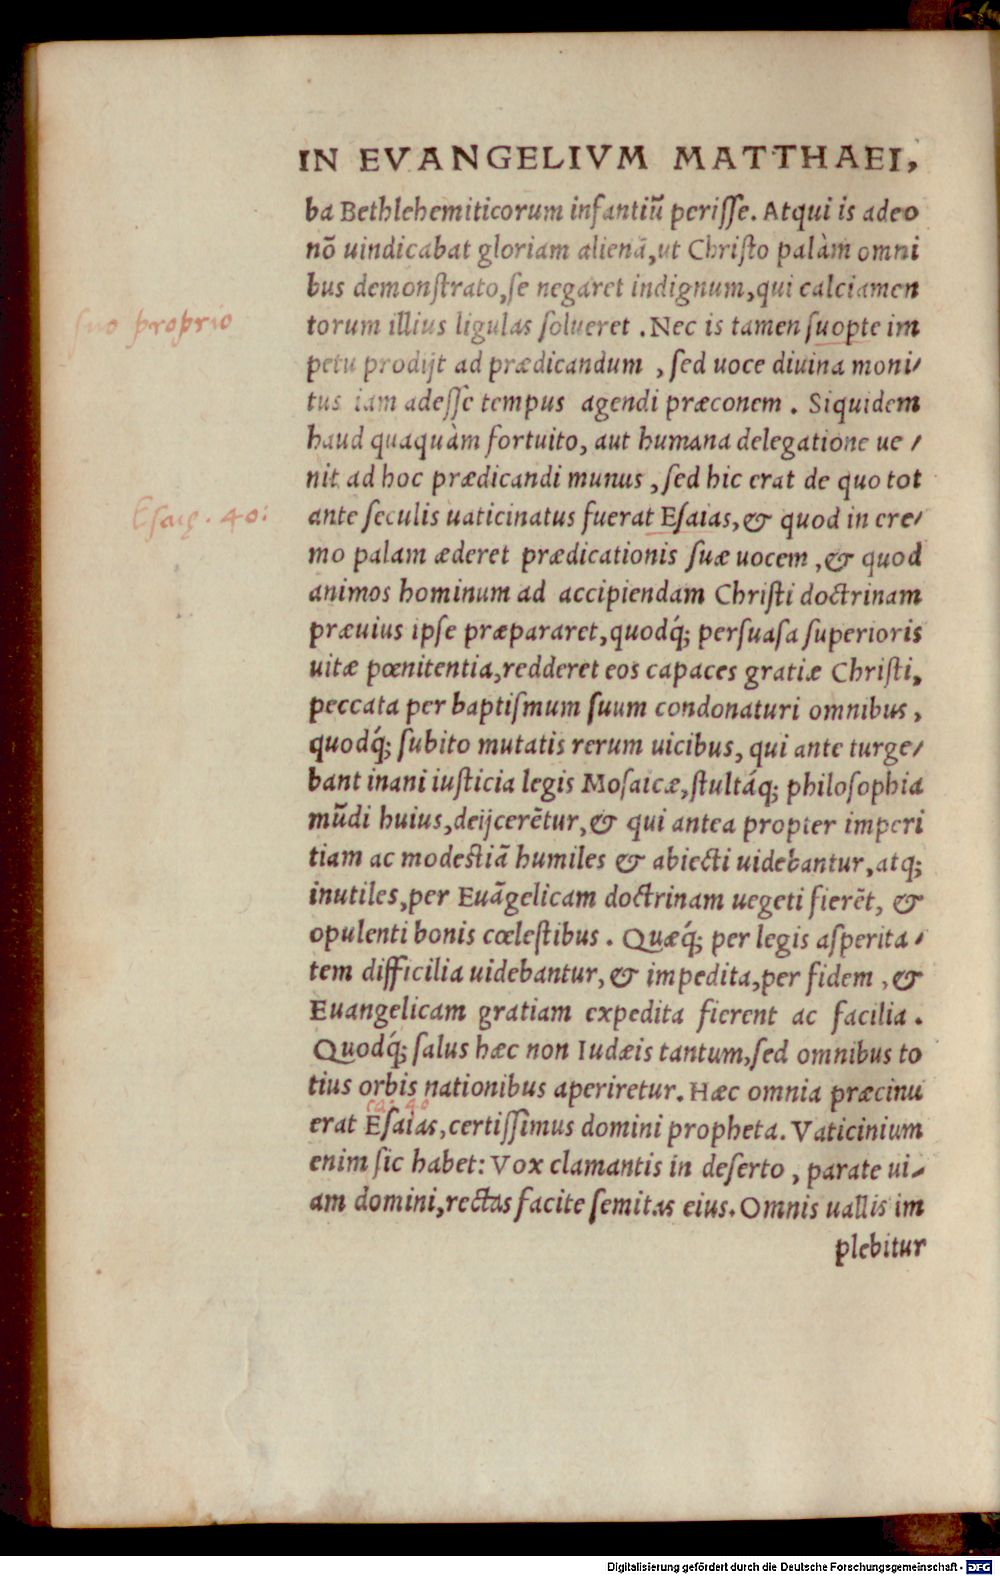 IN EVANGELIVM MATTHAEI,
ba Bethlehemiticorum infantiũ periſſe. Atqui is adeo
nõ uindicabat gloriam alienã, ut Chriſto palàm omni
bus demonſtrato, ſe negaret indignum, qui calciamen
torum illius ligulas ſolueret. Nec is tamen ſuopte im
suo proprio
petu prodijt ad prædicandum, ſed uoce diuina moni/
tus iam adeſſe tempus agendi præconem. Siquidem
haud quaquàm fortuito, aut humana delegatione ue/
nit ad hoc prædicandi munus, ſed hic erat de quo tot
ante ſeculis uaticinatus fuerat Eſaias, & quod in ere/
Esaię. 40:
mo palam æderet prædicationis ſuæ uocem, & quod
animos hominum ad accipiendam Chriſti doctrinam
præuius ipſe præpararet, quodq́; perſuaſa ſuperioris
uitæ pœnitentia, redderet eos capaces gratiæ Chriſti,
peccata per baptiſmum ſuum condonaturi omnibus,
quodq́; ſubito mutatis rerum uicibus, qui ante turge/
bant inani iuſticia legis Moſaicæ, ſtultáq; philoſophia
mũdi huius, deijcerẽtur, & qui antea propter imperi
tiam ac modeſtiã humiles & abiecti uidebantur, atq;
inutiles, per Euãgelicam doctrinam uegeti fierẽt, &
opulenti bonis cœleſtibus. Quæq́; per legis aſperita/
tem difficilia uidebantur, & impedita, per fidem, &
Euangelicam gratiam expedita fierent ac facilia.
Quodq́; ſalus hæc non Iudæis tantum, ſed omnibus to
tius orbis nationibus aperiretur. Hæc omnia præcinu
ca. 40
erat Eſaias, certiſſimus domini propheta. Vaticinium
enim ſic habet: Vox clamantis in deſerto, parate ui/
am domini, rectas facite ſemitas eius. Omnis uallis im
plebitur
Digitalisierung gefördert durch die Deutsche Forschungsgemeinschaft - DFG